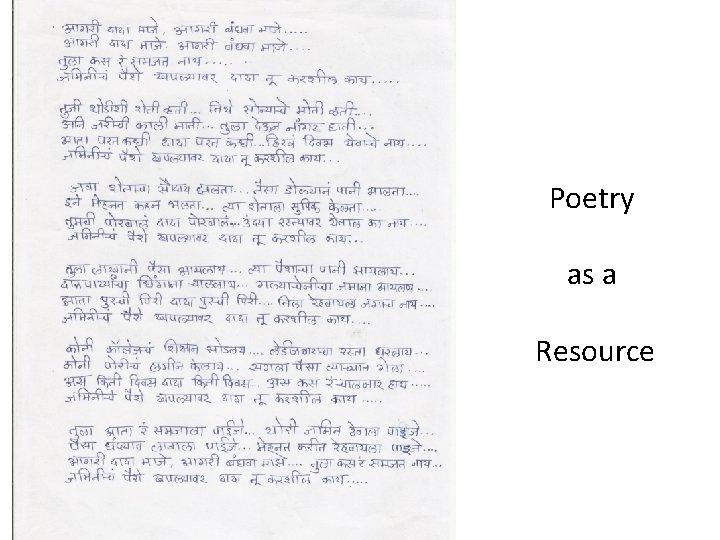 आगरी दादा माजे, आगरी बंधवा माजे.....
आगरी दादा माजे. आगरी बंधवा माजे....
तुला कस रं समजत नाय......
जमिनीचं पैशे खपल्यावर दादा तू करशील काय.....
तुजी थोडीशी शेती हती... तिथे सोन्याचे मोती हती....
आनि जरीची काली माती... तुला देऊन नांगर हाती...
आता परत कधी दादा परत कधी...हिरवं दिवस येवाचे नाय....
जमिनीचं पैशे खपल्यावर दादा तू करशील काय...
जवा शेताचा सौदाय झालता... तैसा डोल्यानं पानी आलता....
इने मेहनत करून भलता... त्या शेताला सुपिक केलता....
तुमची पोरबालं दादा पोरबालं... उंद्या रस्त्यावर येतील का नाय....
जमिनीचं पैशे खपल्यावर दादा तू करशील काय...
तुला लाखानी पैसा आयलाय... त्या पैशाचा पानी आयलाय...
दारू पार्ट्याचा धिंगाना चाललाय... गल्याचेनीचा जमाना आयलाय...
आता धुरची गिरी दादा धुरची गिरी... तिला रेहवायला जगाच नाय....
जमिनीचं पैशे खपल्यावर दादा तू करशील काय....
कोनी कॉलेजचं शिक्षन सोडलय.... लेडीजबारचा रस्ता धरलाय...
कोनी पोरीचं लगीन केलाय... सगला पैसा त्याच्यान गेला....
अस किती दिवस दादा किती दिवस.. अस कस रं चालनार हाय.....
जमिनीचं पैशे खपल्यावर दादा तू करशील काय.....
तुला आता रं समजाला पाईजे... थोरी जमिन ठेवाला पाइजे...
पैसा धंद्यान लावाला पाईजे... मेहनत करीत रेहवायला पाइजे....
आगरी दादा माजे, आगरी बंधवा माझे.... तुला कस रं समजत नाय...
जमिनीचं पैशे खपल्यावर दादा तू करशील काय.....
Poetry
as a
Resource